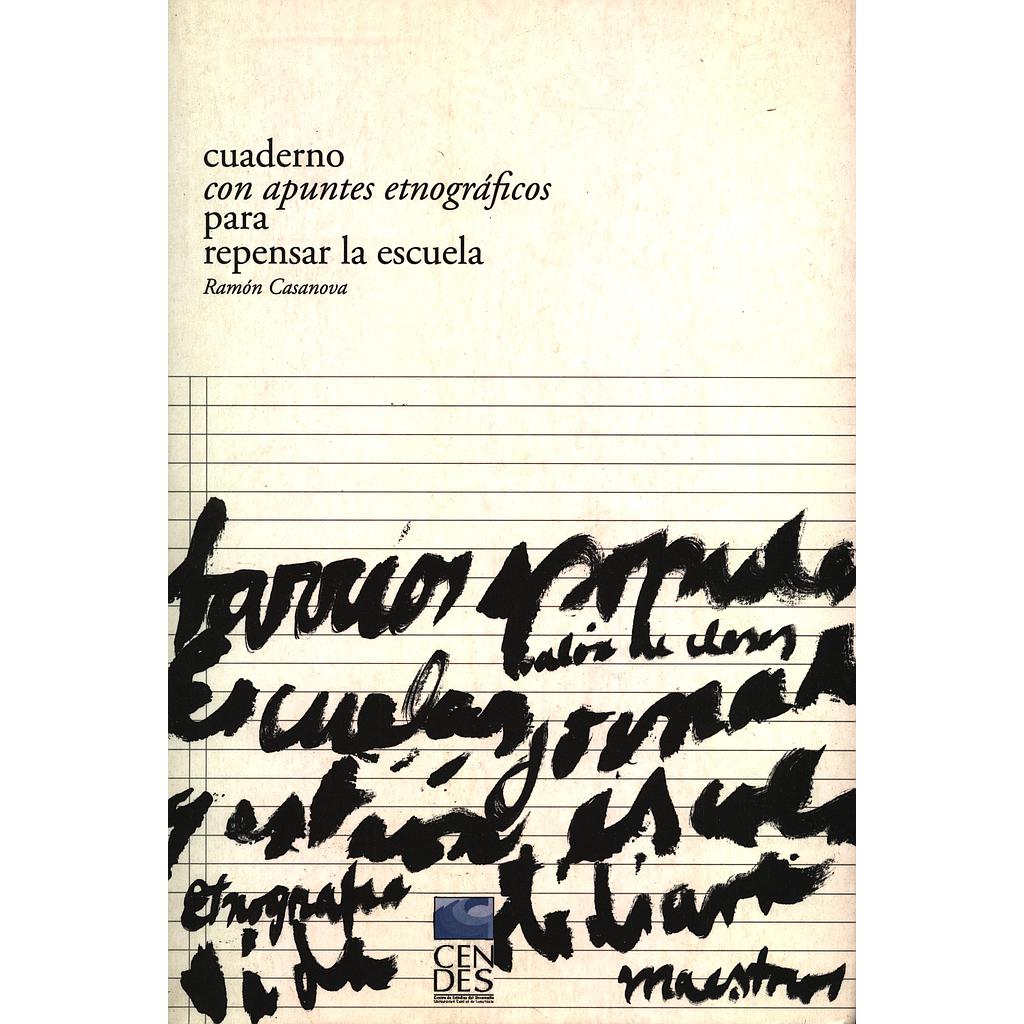 cuaderno
con apuntes etnográficos
para
repensar la escuela
Ramón Casanova
barrios popula
salón de clases
Escuelas jornal
gestión escola
etnografía
estudiante
vida
maestros
CEN
DES
Centro de Estudios del Desarrollo
Universidad Central de Venezuela